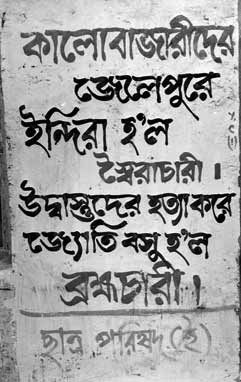 কালোবাজারীদের
জেলেপুরে
ইন্দিরা হ'ল
স্বৈরাচারী।
উদ্বাস্তুদের হত্যা করে
জ্যোতি বসু হ'ল
ব্রহ্মচারী।
ছাত্র পরিষদ (ই)